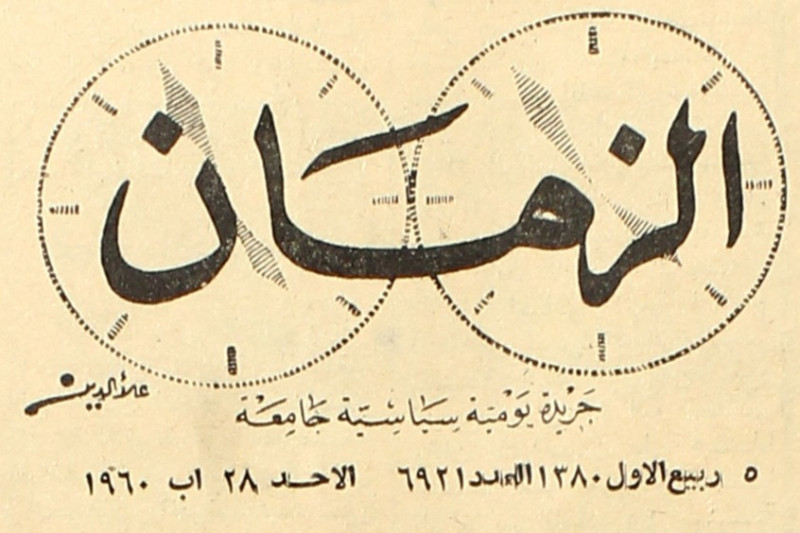 الزمان
علاءالدين
جَرْيدة يَوْمية سِيَاسْيّة جَامِعَة
٥ ربيع الاول ١٣٨٠ العدد ٦٩٢١ الاحد ٢٨ اب ١٩٦٠